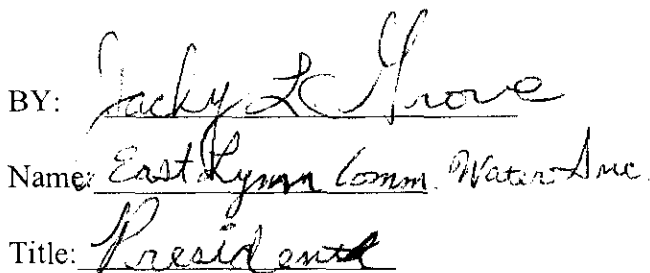 BY: Jacky L Grove
Name: East Lynn Comm. Water Inc.
Title: President